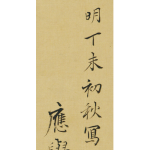 明丁未初秋寫
應